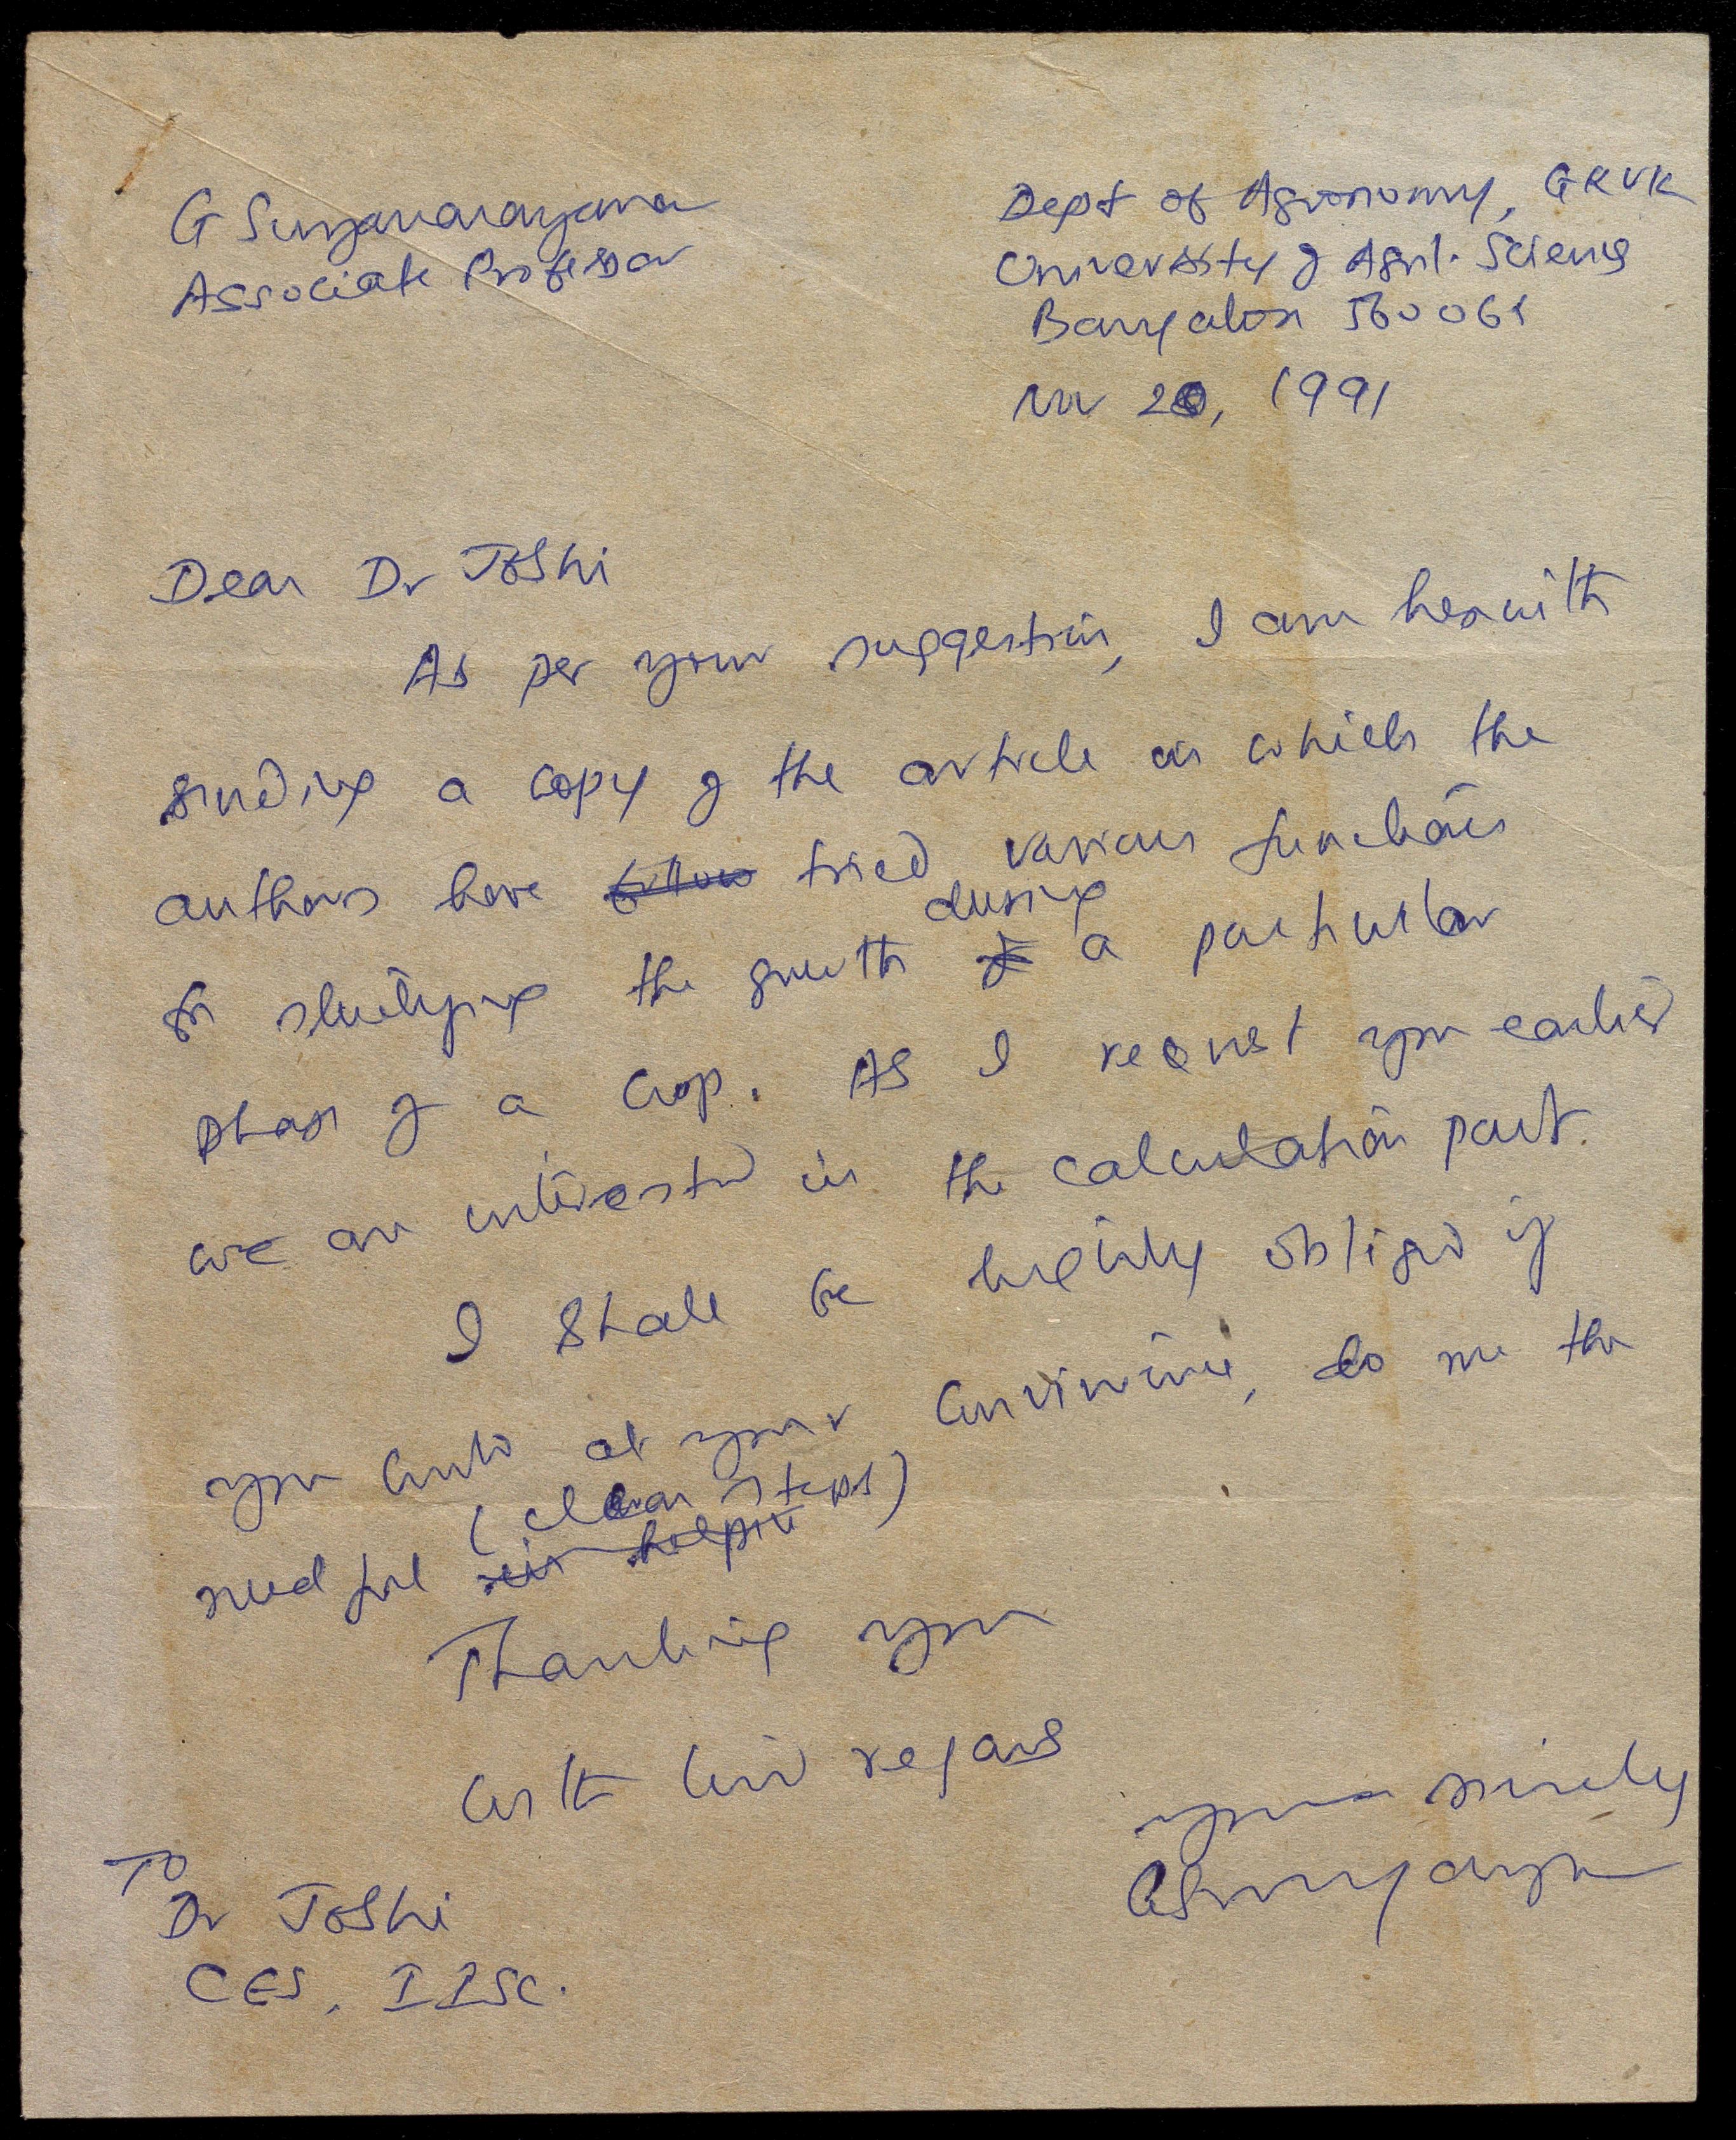 G Suryanarayana
Associate Professor
Dept of Agronomy, GKVK
University of Agril. Sciences
Bangalore 560065
Nov 20, 1991
Dear Dr Joshi
As per your suggestion, I am herewith
sending a copy of the article in which the
authors have tried various functions
during
for studying the growth a particular
phase of a crop. As I request you earlier
we are interested in the calculation part.
I shall be highly obliged if
you could at your convinience, do me the
(clear steps)
needful
Thanking you
With kind regards
yours sincerely
To
Dr Joshi
CES, IISc.